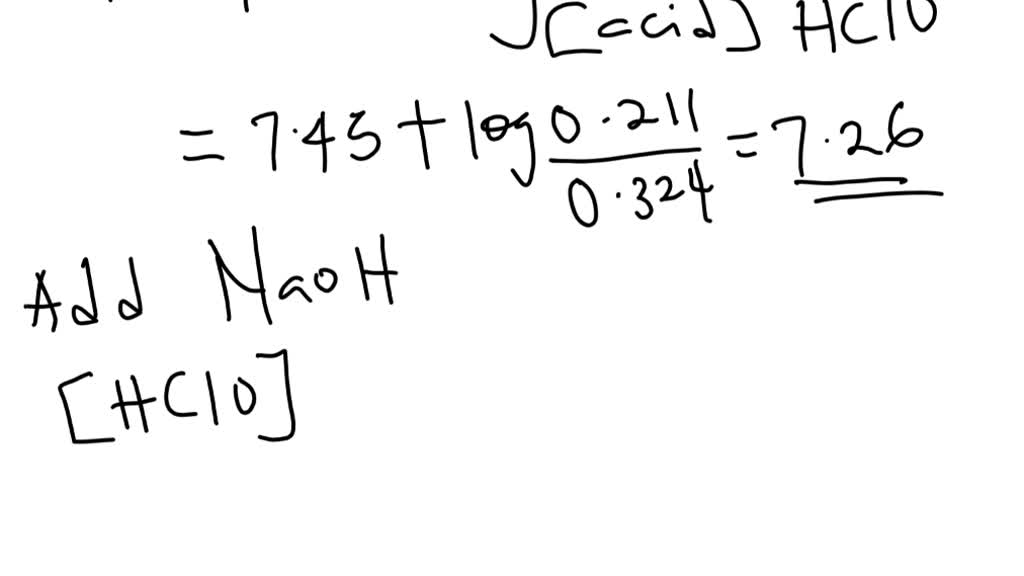 [acid] HClO
= 7.45 + log 0.211 / 0.324 = 7.26
Add NaOH
[HClO]